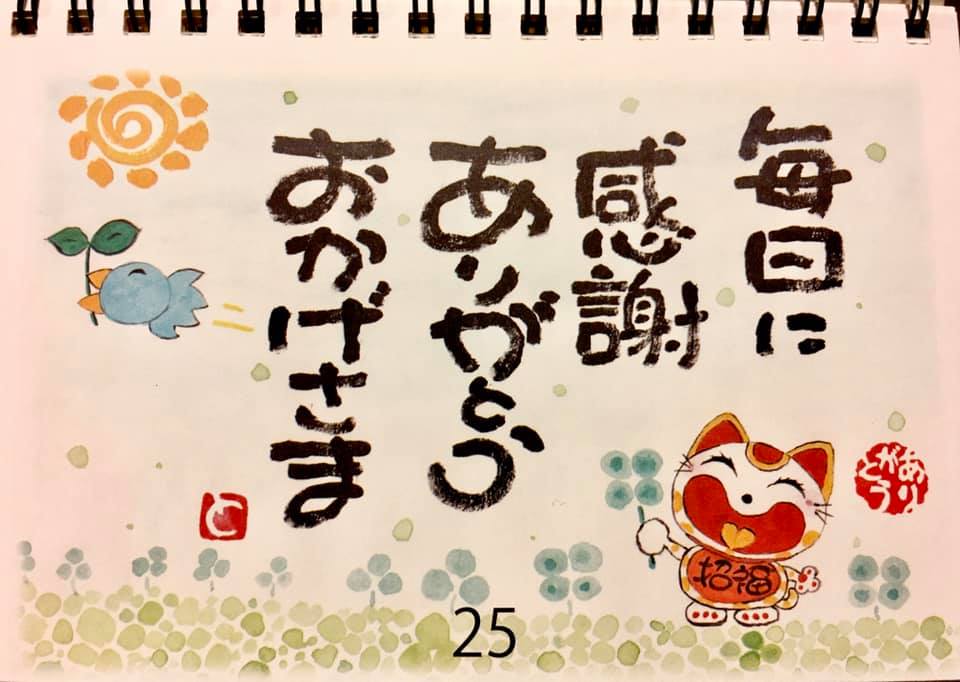 毎日に
感謝
ありがとう
おかげさま
ありがとう
招福
25